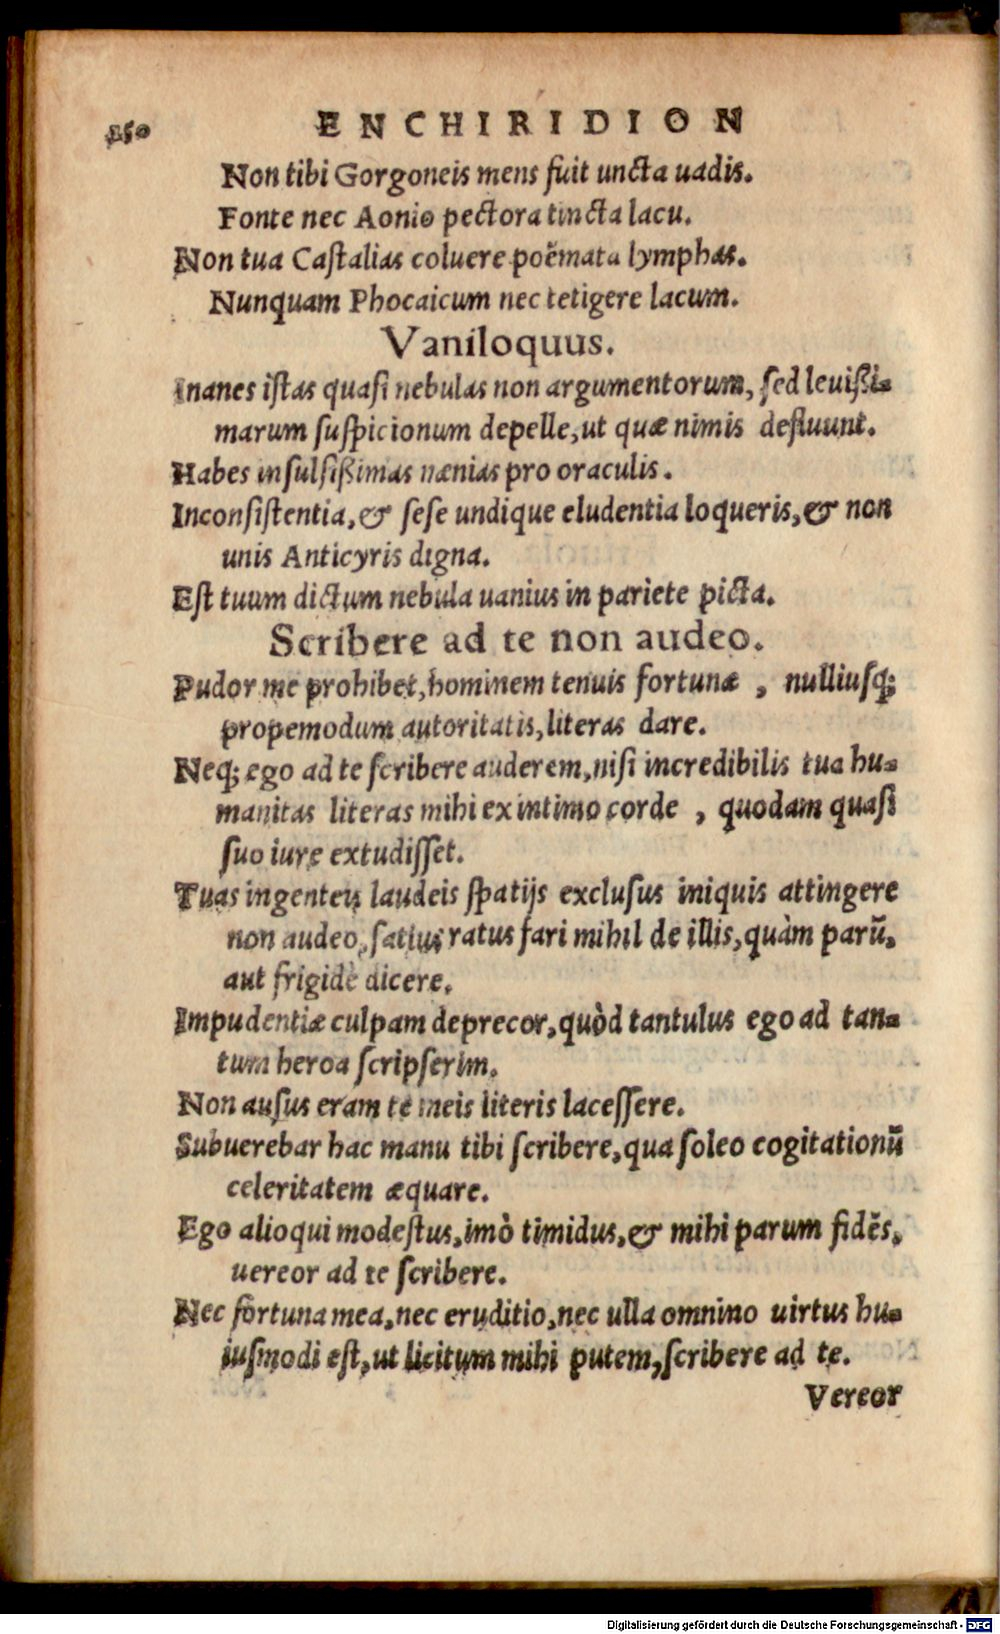 250 ENCHIRIDION
Non tibi Gorgoneis mens fuit uncta uadis.
Fonte nec Aonio pectora tincta lacu.
Non tua Castalias coluere poëmata lymphas.
Nunquam Phocaicum nec tetigere lacum.
Vaniloquus.
Inanes istas quasi nebulas non argumentorum, sed leuißi-
marum suspicionum depelle, ut quæ nimis defluunt.
Habes insulsißimas nænias pro oraculis.
Inconsistentia, & sese undique eludentia loqueris, & non
unis Anticyris digna.
Est tuum dictum nebula uanius in pariete picta.
Scribere ad te non audeo.
Pudor me prohibet, hominem tenuis fortunæ , nulliusq;
propemodum autoritatis, literas dare.
Neq; ego ad te scribere auderem, nisi incredibilis tua hu-
manitas literas mihi ex intimo corde , quodam quasi
suo iure extudisset.
Tuas ingenteis laudeis spatijs exclusus iniquis attingere
non audeo, satius ratus fari mihil de illis, quàm parū,
aut frigidè dicere.
Impudentiæ culpam deprecor, quòd tantulus ego ad tan-
tum heroa scripserim.
Non ausus eram te meis literis lacessere.
Subuerebar hac manu tibi scribere, qua soleo cogitationū
celeritatem æquare.
Ego alioqui modestus, imò timidus, & mihi parum fidēs,
uereor ad te scribere.
Nec fortuna mea, nec eruditio, nec ulla omnino uirtus hu-
iusmodi est, ut licitum mihi putem, scribere ad te.
Vereor
Digitalisierung gefördert durch die Deutsche Forschungsgemeinschaft - DFG